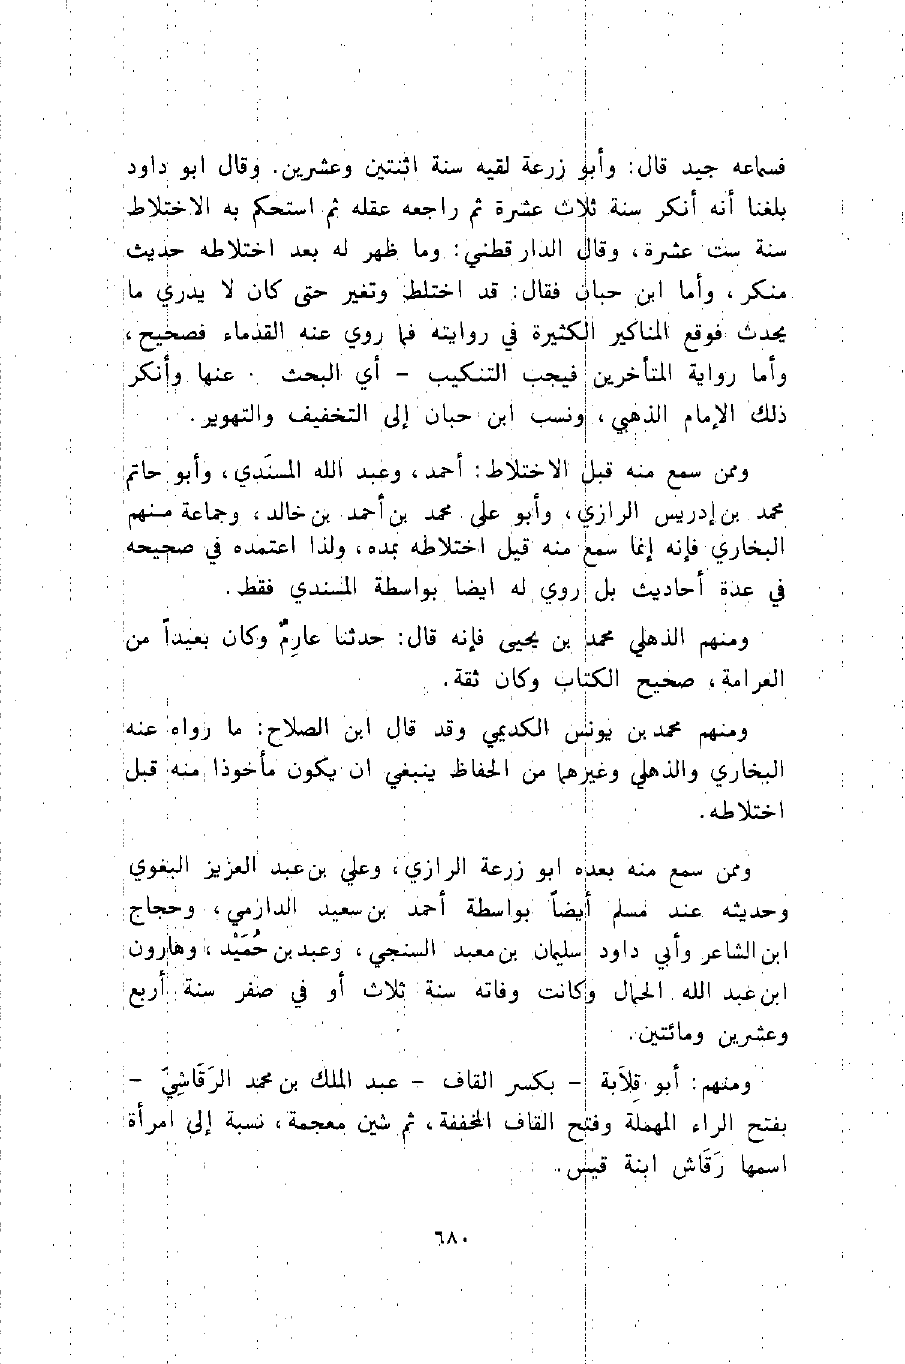 فسماعه جيد قال: وأبو زرعة لقيه سنة اثنتين وعشرين. وقال ابو داود
بلغنا أنه أنكر سنة ثلاث عشرة ثم راجعه عقله ثم استحكم به الاختلاط
سنة ست عشرة، وقال الدارقطني: وما ظهر له بعد اختلاطه حديث
منكر، وأما ابن حبان فقال: قد اختلط وتغير حتى كان لا يدري ما
يحدث فوقع المناكير الكثيرة في روايته فما روي عنه القدماء فصحيح،
وأما رواية المتأخرين فيجب التنكيب - أي البحث - عنها وأنكر
ذلك الإمام الذهبي، ونسب ابن حبان إلى التخفيف والتهوير.
وممن سمع منه قبل الاختلاط: أحمد، وعبد الله المسنَدي، وأبو حاتم
محمد بن إدريس الرازي، وأبو علي محمد بن أحمد بن خالد، وجماعة منهم
البخاري فإنه إنما سمع منه قبل اختلاطه بمده، ولذا اعتمده في صحيحه
في عدة أحاديث بل روي له ايضا بواسطة المسندي فقط.
ومنهم الذهلي محمد بن يحيى فإنه قال: حدثنا عارِمٌ وكان بعيداً من
العرامة، صحيح الكتاب وكان ثقة.
ومنهم محمد بن يونس الكديمي وقد قال ابن الصلاح: ما رواه عنه
البخاري والذهلي وغيرهما من الحفاظ ينبغي ان يكون مأخوذا منه قبل
اختلاطه.
وممن سمع منه بعده ابو زرعة الرازي، وعلي بن عبد العزيز البغوي
وحديثه عند مسلم أيضاً بواسطة أحمد بن سعيد الدارمي، وحجاج
ابن الشاعر وأبي داود سليمان بن معبد السنجي، وعبد بن حُمَيْد، وهارون
ابن عبد الله الحمال وكانت وفاته سنة ثلاث أو في صفر سنة أربع
وعشرين ومائتين.
ومنهم: أبو قِلاَبة - بكسر القاف - عبد الملك بن محمد الرَقَاشِيّ -
بفتح الراء المهملة وفتح القاف المخففة، ثم شين معجمة، نسبة إلى امرأة
اسمها رَقَاش ابنة قيس.
٦٨٠